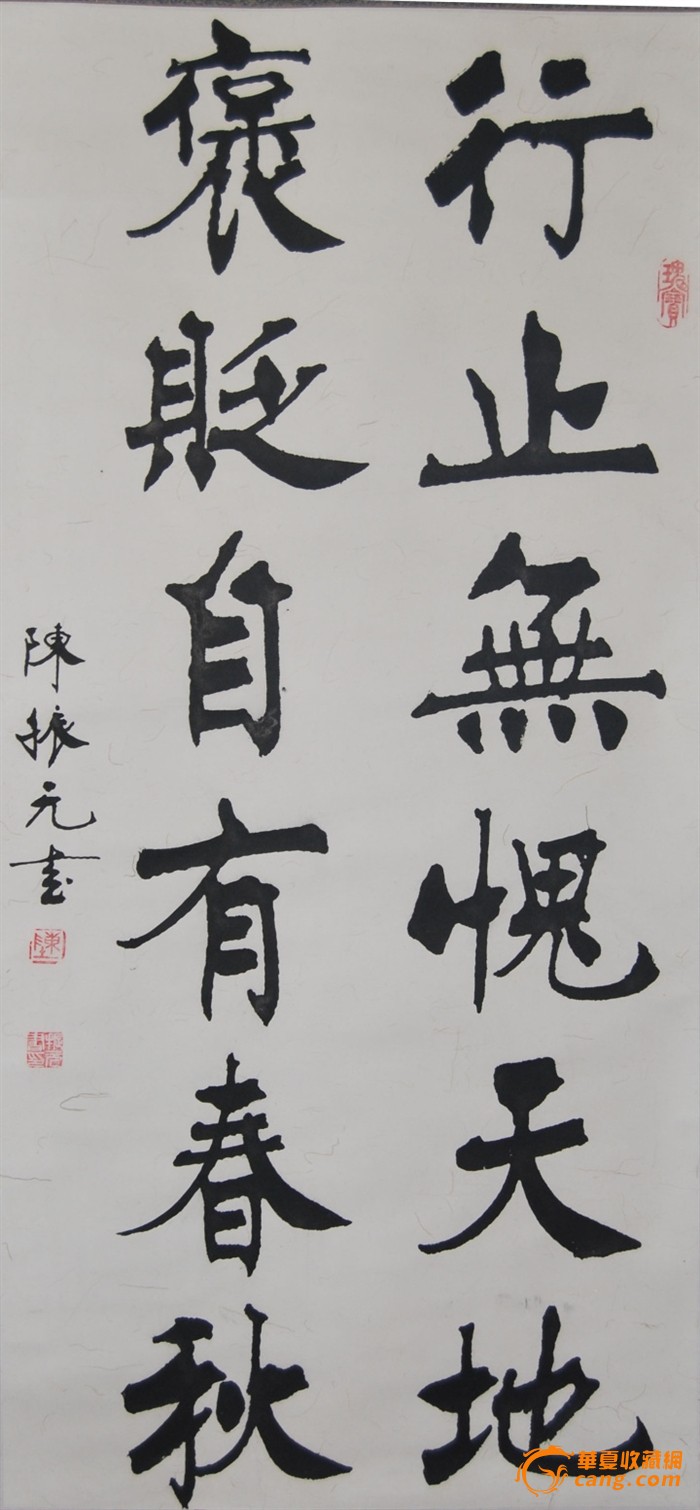 行止無愧天地
褒貶自有春秋
陳振元書
瑰寶
陳
華夏收藏網
cang.com